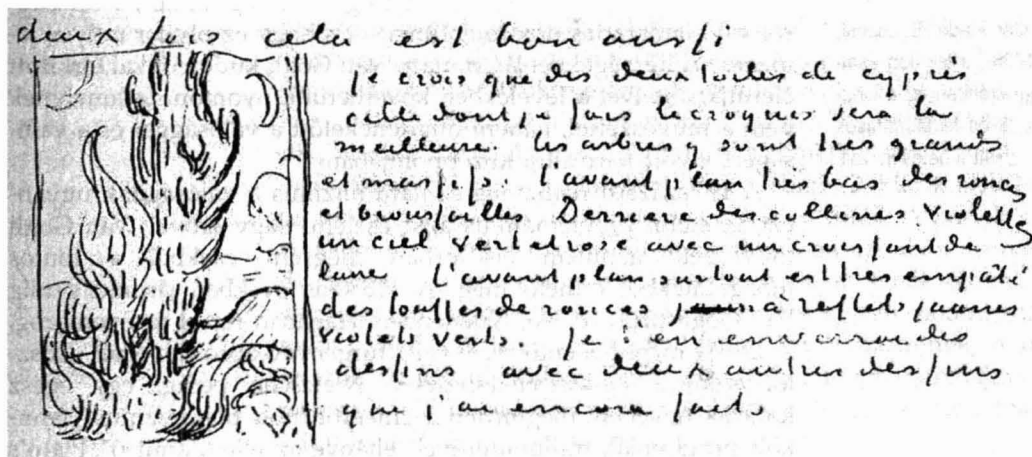 deux fois cela est bon aussi.
je crois que des deux toiles de cyprès
celle dont je fais le croquis sera la
meilleure. les arbres y sont très grands
et massifs. l'avant plan très bas des ronces
et broussailles. Derrière des collines violettes
un ciel vert et rose avec un croissant de
lune. l'avant plan surtout est très empaté
des touffes de ronces à reflets jaunes
violets verts. je t'en enverrai des
dessins avec deux autres dessins
que j'ai encore faits